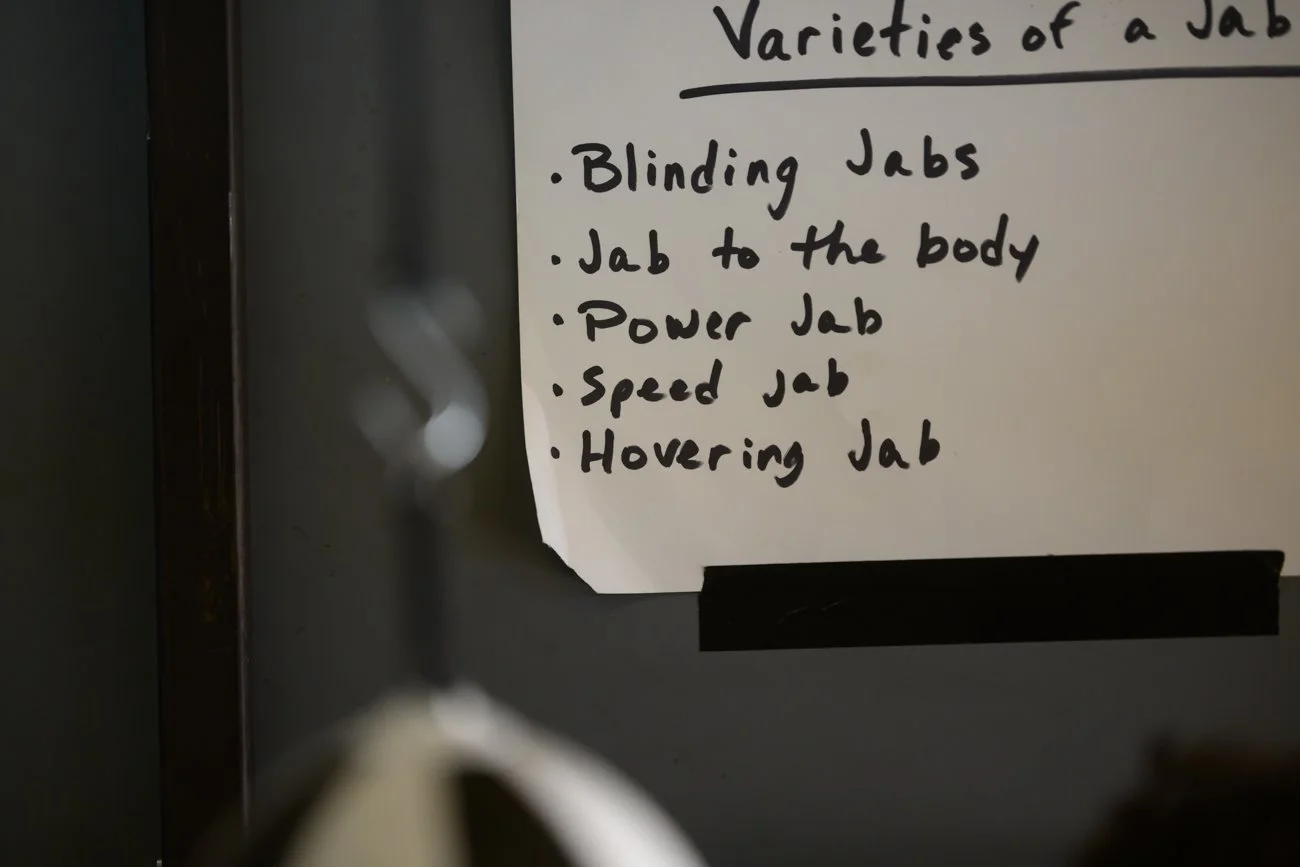 Varieties of a Jab
· Blinding Jabs
· Jab to the body
· Power Jab
· Speed jab
· Hovering Jab